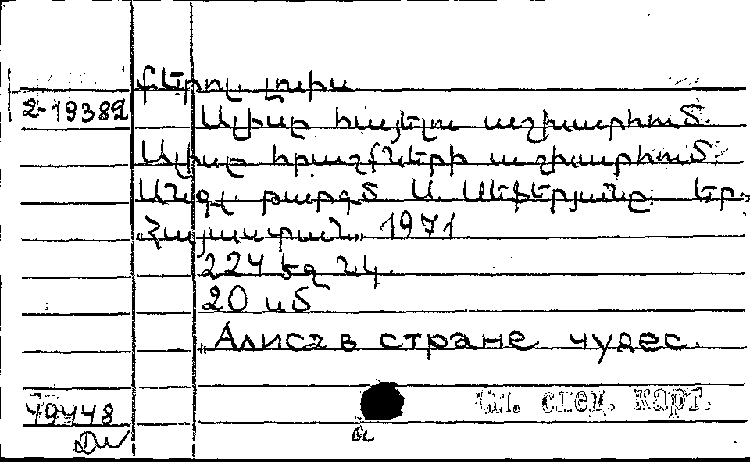 Քերոլ Լուիս
2-19382
Ալիսը հայելու աշխարհում.
Ալիսը հրաշքների աշխարհում.
Անգլ. թարգմ. Ս. Սեֆերյանը. Եր.,
«Հայաստան» 1971
224 էջ նկ.
20 սմ
«Алиса в стране чудес.
49448
См. спец. карт.